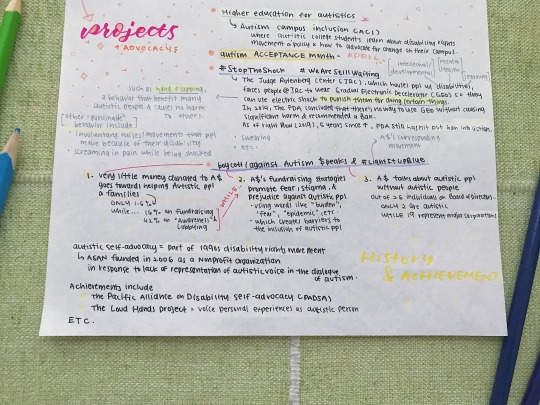 projects
+ ADVOCACYS
Higher education for autistics
↳ Autism campus inclusion (ACI)
where autistic college students learn about disability rights
movement & policy & how to advocate for change on their campus.
autism ACCEPTANCE month - APRIL
#StopTheShock # We Are Still Waiting
[intellectual/
developmental]
[mental
health]
[learning]
↳ The Judge Rotenberg Center (JRC), which houses ppl w/ disabilities,
forces people @ JRC to wear Gradual Electronic Decelerator (GED) so they
can use electric shock to punish them for doing certain things.
In 2014, the FDA concluded that there's no way to use GED without causing
significant harm & recommended a ban.
As of right now (2019), 5 years since ↑, FDA still has not put ban into action.
such as hand flapping
a behavior that benefit many
autistic people & causes no harm
to others.
[other "punishable"
behavior include]
• involuntary noises/movements that ppl
make because of their disability
• screaming in pain while being shocked
• swearing
• etc.
A$'s corresponding
movement
boycott/against Autism $peaks & #LIGHTITUPBLUE
1. very little money donated to A$
goes towards helping Autistic ppl
& families
ONLY 1.6%
while... 16% on Fundraising
42% on "Awareness"&
Lobbying
2. A$'s fundraising strategies
promote fear, stigma, &
prejudice against autistic ppl
• using words like "burden",
"fear", "epidemic", etc.
• which creates barriers to
the inclusion of autistic ppl
WHILE
3. A$ talks about autistic ppl
without autistic people
out of 26 individuals on Board of Directors
ONLY 2 are autistic
WHILE 19 represent major corporations
autistic self-advocacy = part of 1990s disability rights movement
↳ ASAN founded in 2006 as a nonprofit organization
in response to lack of representation of autistic voice in the dialogue
of autism.
HISTORY
& ACHIEVEMENT
Achievements include
• The Pacific Alliance on Disability Self-advocacy (PADSA)
• The Loud Hands project = voice personal experiences as autistic person
ETC.